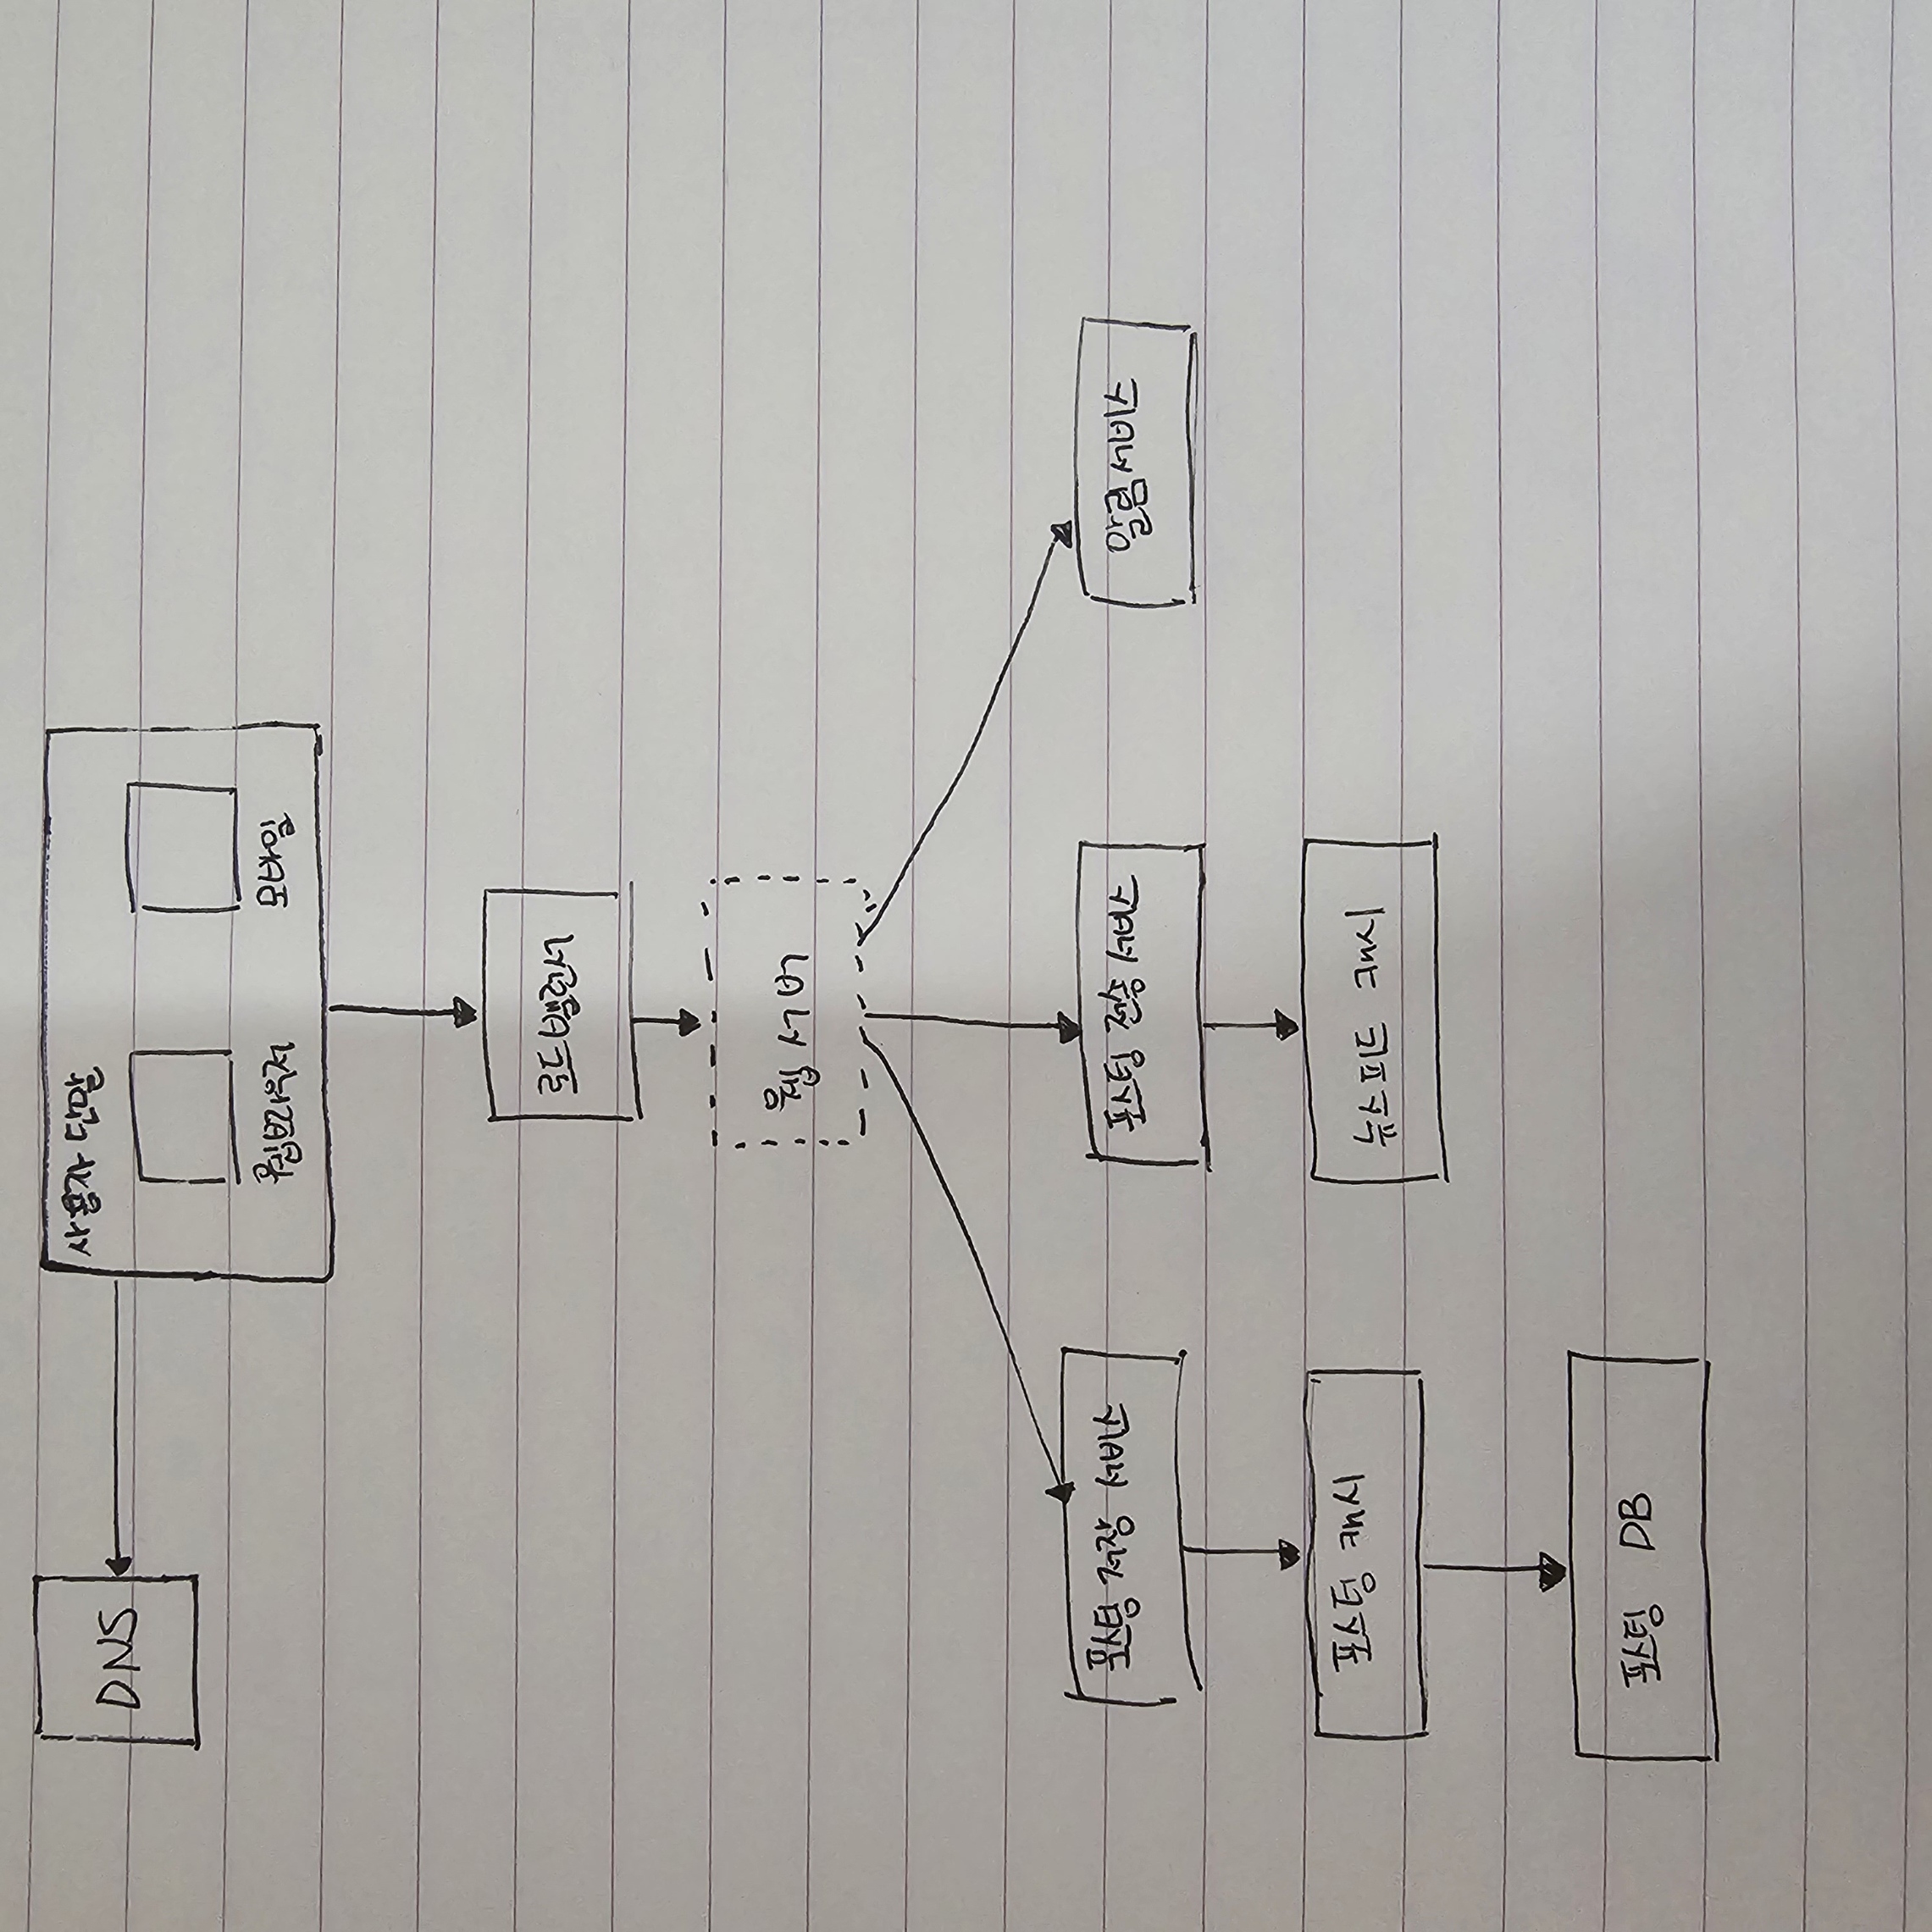 DNS
사용자 단말
웹브라우저
모바일
로드밸런서
웹 서버
포스팅 저장 서비스
포스팅 전송 서비스
알림 서비스
포스팅 캐시
뉴스피드 캐시
포스팅 DB